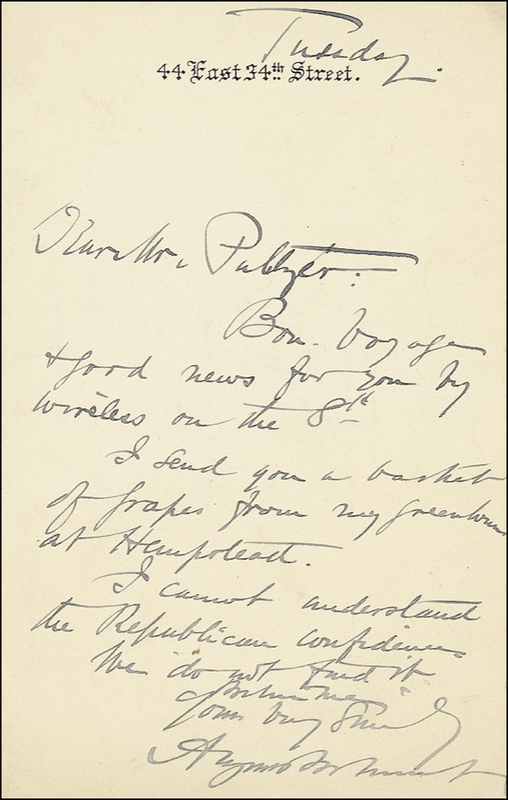 Tuesday.
44 East 34th Street.
Dear Mr. Pulitzer:
Bon. Voyage
& good news for you by
wireless on the 8th
I send you a basket
of grapes from my greenhouse
at Hempstead.
I cannot understand
the Republican confidence
We do not find it
Yours very
August Belmont